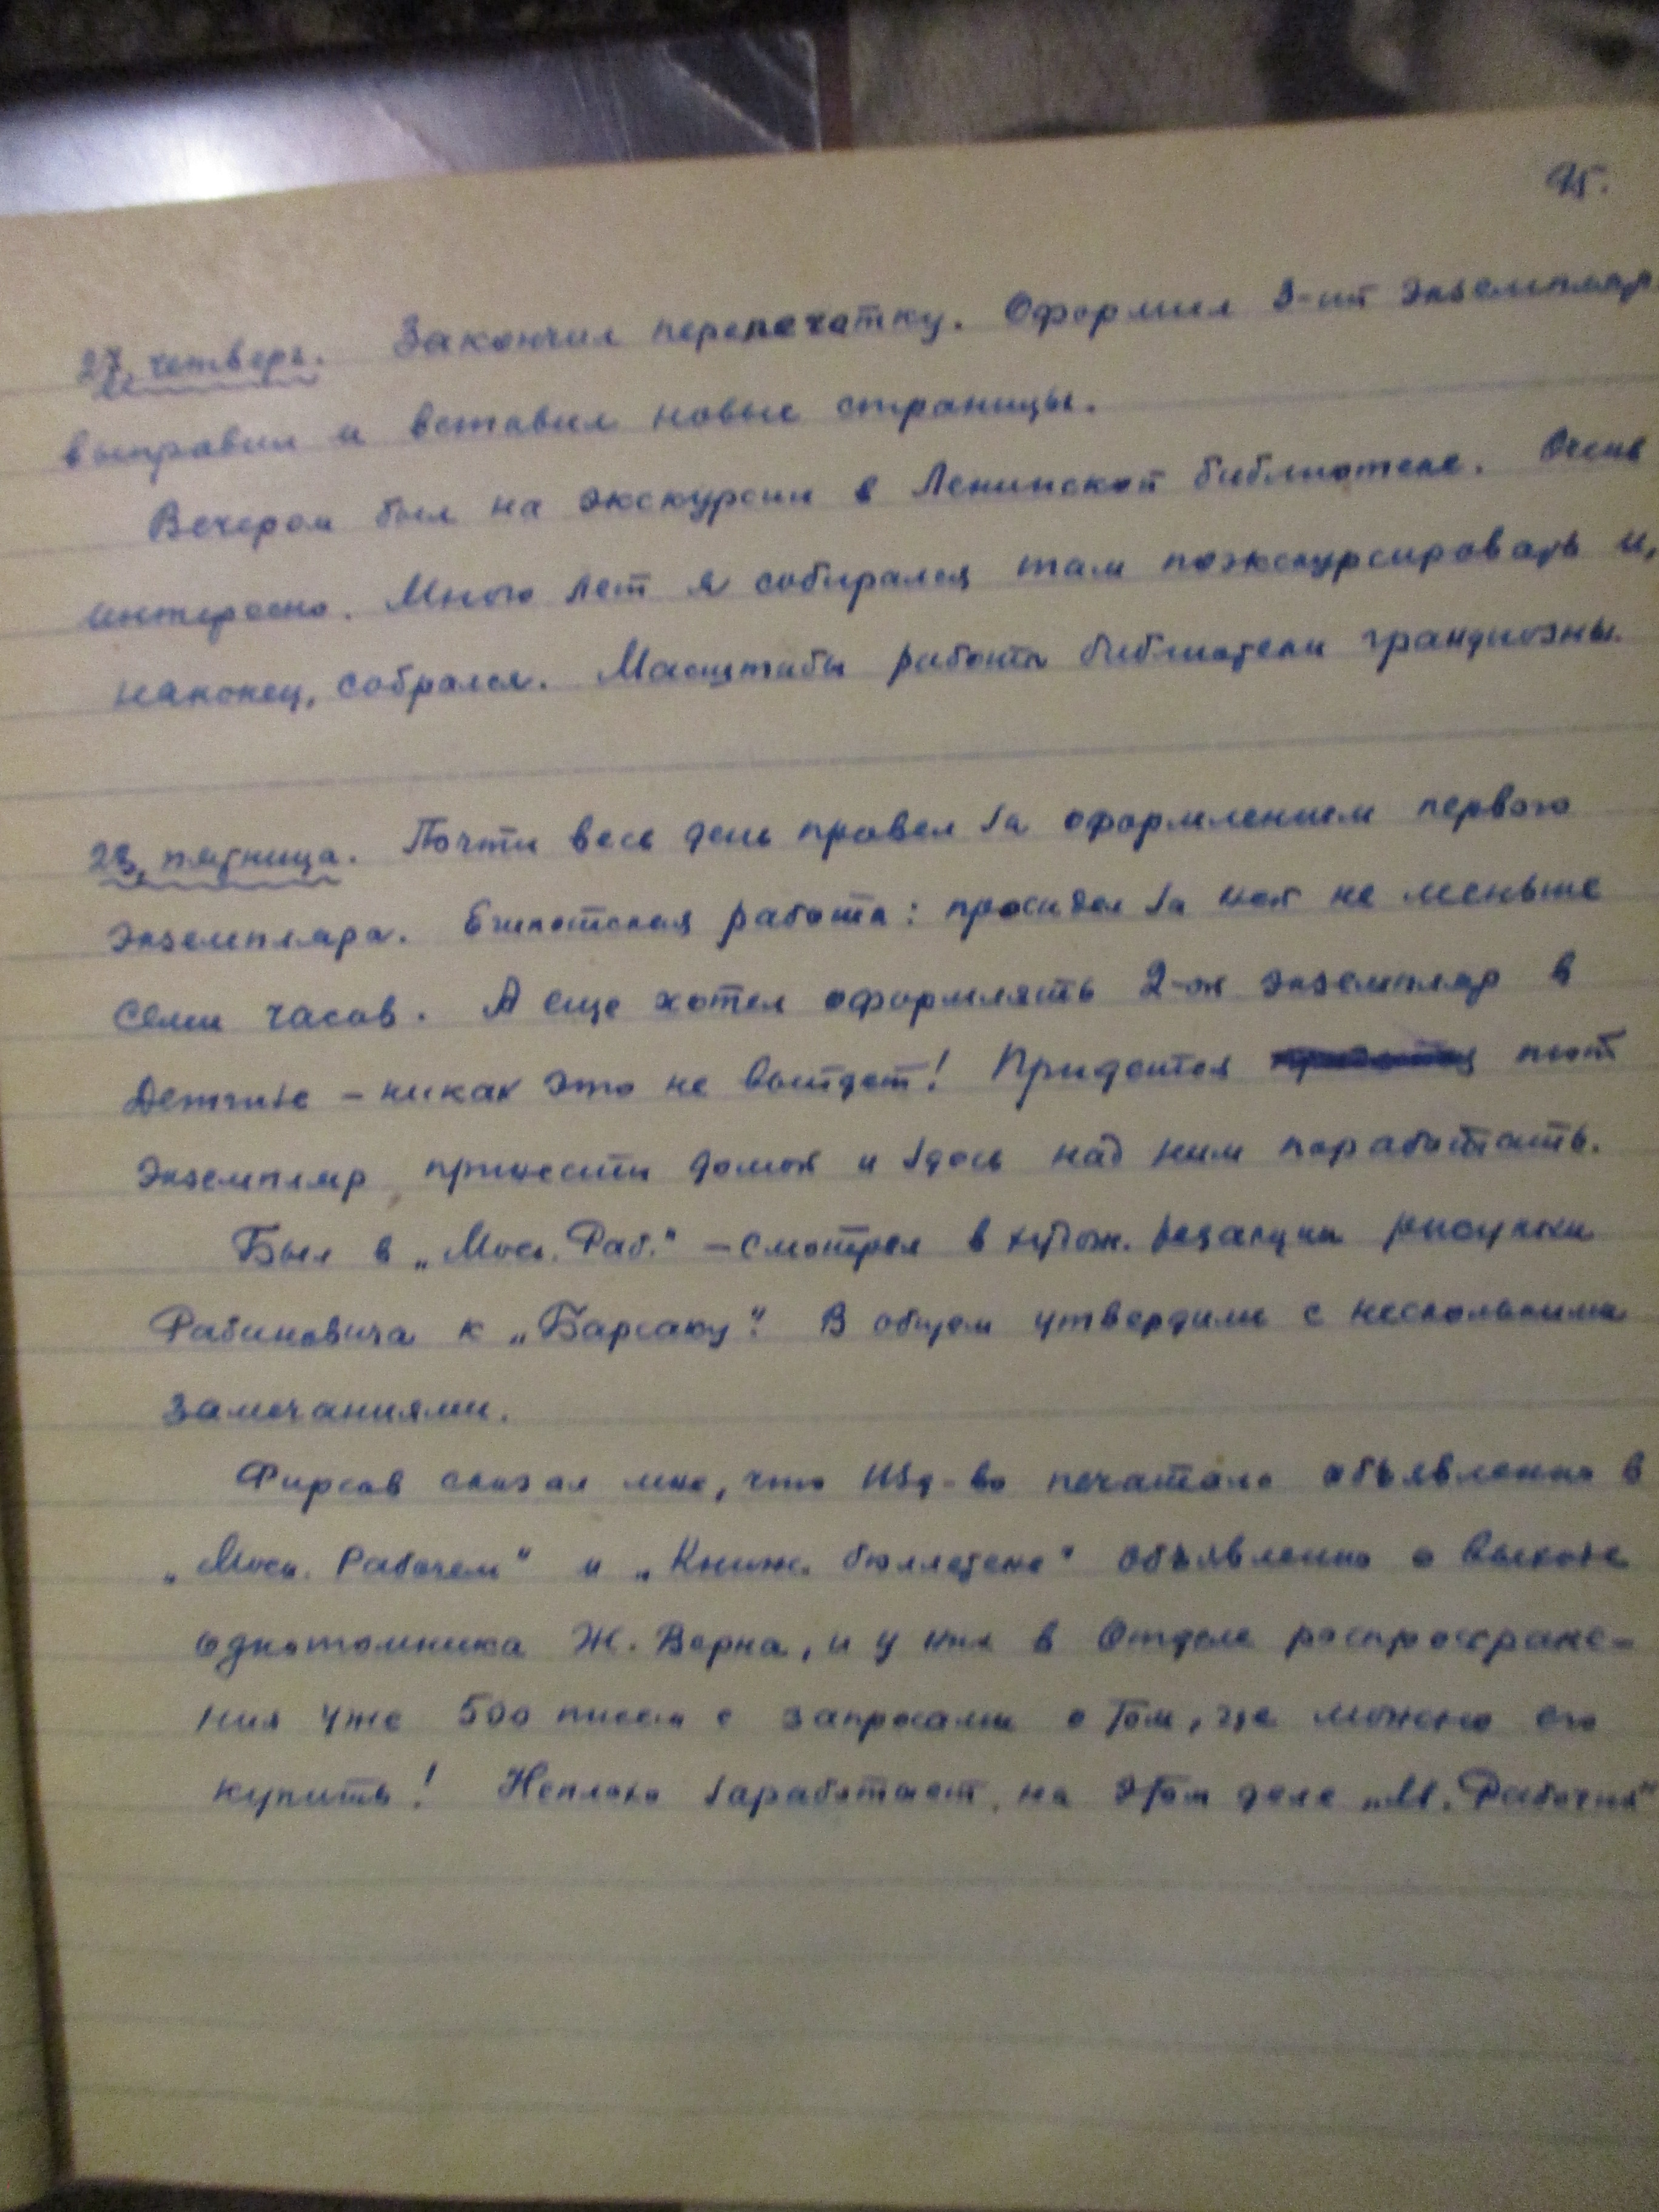 95.
27, четверг. Закончил перепечатку. Оформил 3-ий экземпляр,
выправил и вставил новые страницы.
Вечером был на экскурсии в Ленинской библиотеке. Очень
интересно. Много лет я собирался там поэкскурсировать и,
наконец, собрался. Масштабы работы библиотеки грандиозны.
28, пятница. Почти весь день провел за оформлением первого
экземпляра. Египетская работа: просидел за ней не меньше
семи часов. А еще хотел оформлять 2-ой экземпляр в
Детгизе – никак это не выйдет! Придется этот
экземпляр принести домой и здесь над ним поработать.
Был в „Моск. Раб." – смотрел в худож. редакции рисунки
Рабиновича к „Барсаку". В общем утвердили с несколькими
замечаниями.
Фирсов сказал мне, что изд-во печатало объявления в
„Моск. Рабочем" и „Книжн. бюллетене" объявления о выходе
однотомника Ж. Верна, и у них в Отделе распростране-
ния уже 500 писем с запросами о том, где можно его
купить! Неплохо заработает на этом деле „М. Рабочий"